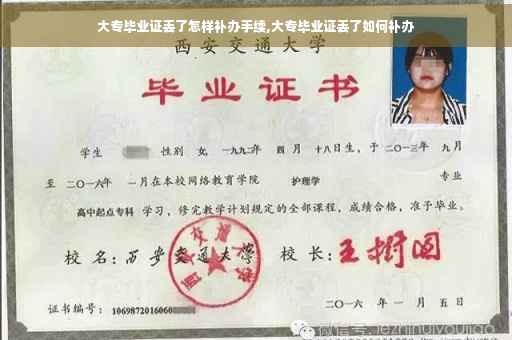 大专毕业证丢了怎样补办手续,大专毕业证丢了如何补办
西安交通大学
毕业证书
学生 性别 女, 一九九二年 四月 十八日生, 于 二〇一三年 九月
至 二〇一六年 一月在本校网络教育学院 护理学 专业
高中起点专科 学习, 修完教学计划规定的全部课程, 成绩合格, 准予毕业。
校 名: 西安交通大学
校 长: 王树国
西安交通大学
证书编号: 1069872016060
二〇一六 年 一 月 五 日
微信号: jezhinuiyoujiao